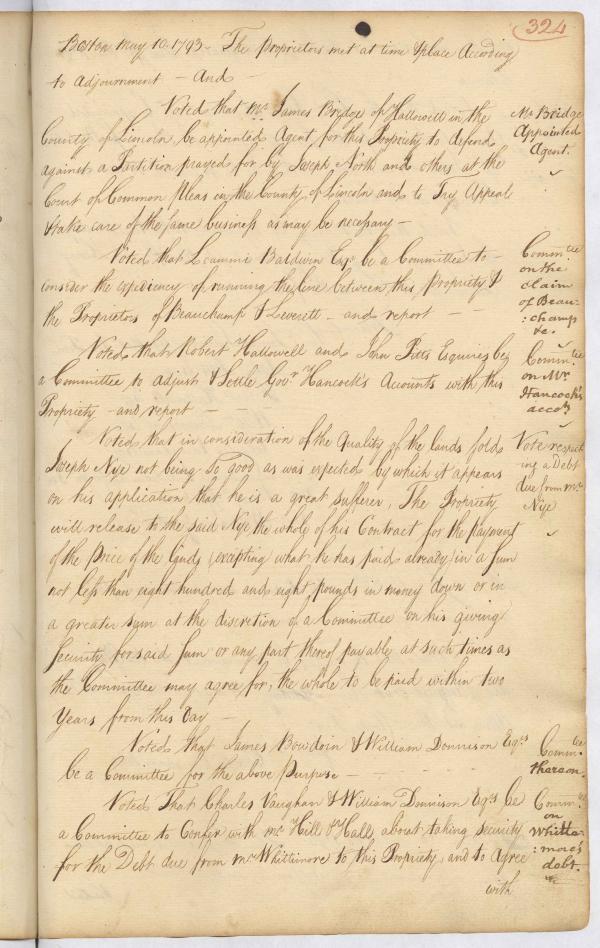 324
Boston May 10. 1793 - The Proprietors met at time & place According
to Adjournment - And -
Voted that Mr. James Bridge of Hallowell in the
County of Lincoln, be appointed Agent for this Propriety to defend
against a Partition prayed for by Joseph North and others at the
Court of Common Pleas in the County of Lincoln and to Try Appeal
& take care of the same business as may be necessary -
Mr. Bridge
Appointed
Agent.
Voted that Loammi Baldwin Esqr. be a Committee to -
consider the expediency of running the line between this Propriety &
the Proprietors of Beauchamp & Leverett - and report - -
Commttee
on the
claim
of Beau-
:champ
&c.
Voted that Robert Hallowell and John Pitts Esquires be
a Committee to adjust & Settle Govr. Hancock's Accounts with this
Propriety - and report - -
Commttee
on Mr.
Hancock's
accots.
Voted that in consideration of the Quality of the lands sold
Joseph Nye not being So good as was expected by which it appears
on his application that he is a great sufferer, The Propriety
will release to the said Nye the whole of his Contract for the payment
of the Price of the Lands (excepting what he has paid already) in a sum
not less than eight hundred and eight pounds in money down or in
a greater sum at the discretion of a Committee on his giving
Security for said sum or any part thereof payable at such times as
the Committee may agree for, the whole to be paid within two
Years from this Day -
Vote respect
ing a Debt
due from Mr.
Nye
Voted that James Bowdoin & William Donnison Esqrs.
be a Committee for the above Purpose - - -
Commttee
thereon.
Voted That Charles Vaughan & William Donnison Esqrs be
a Committee to Confer with Mr. Hill & Hall, about taking Security
for the Debt due from Mr Whittimore to this Propriety and to Agree
with
Commttee
on
Whitte-
:more's
debt.